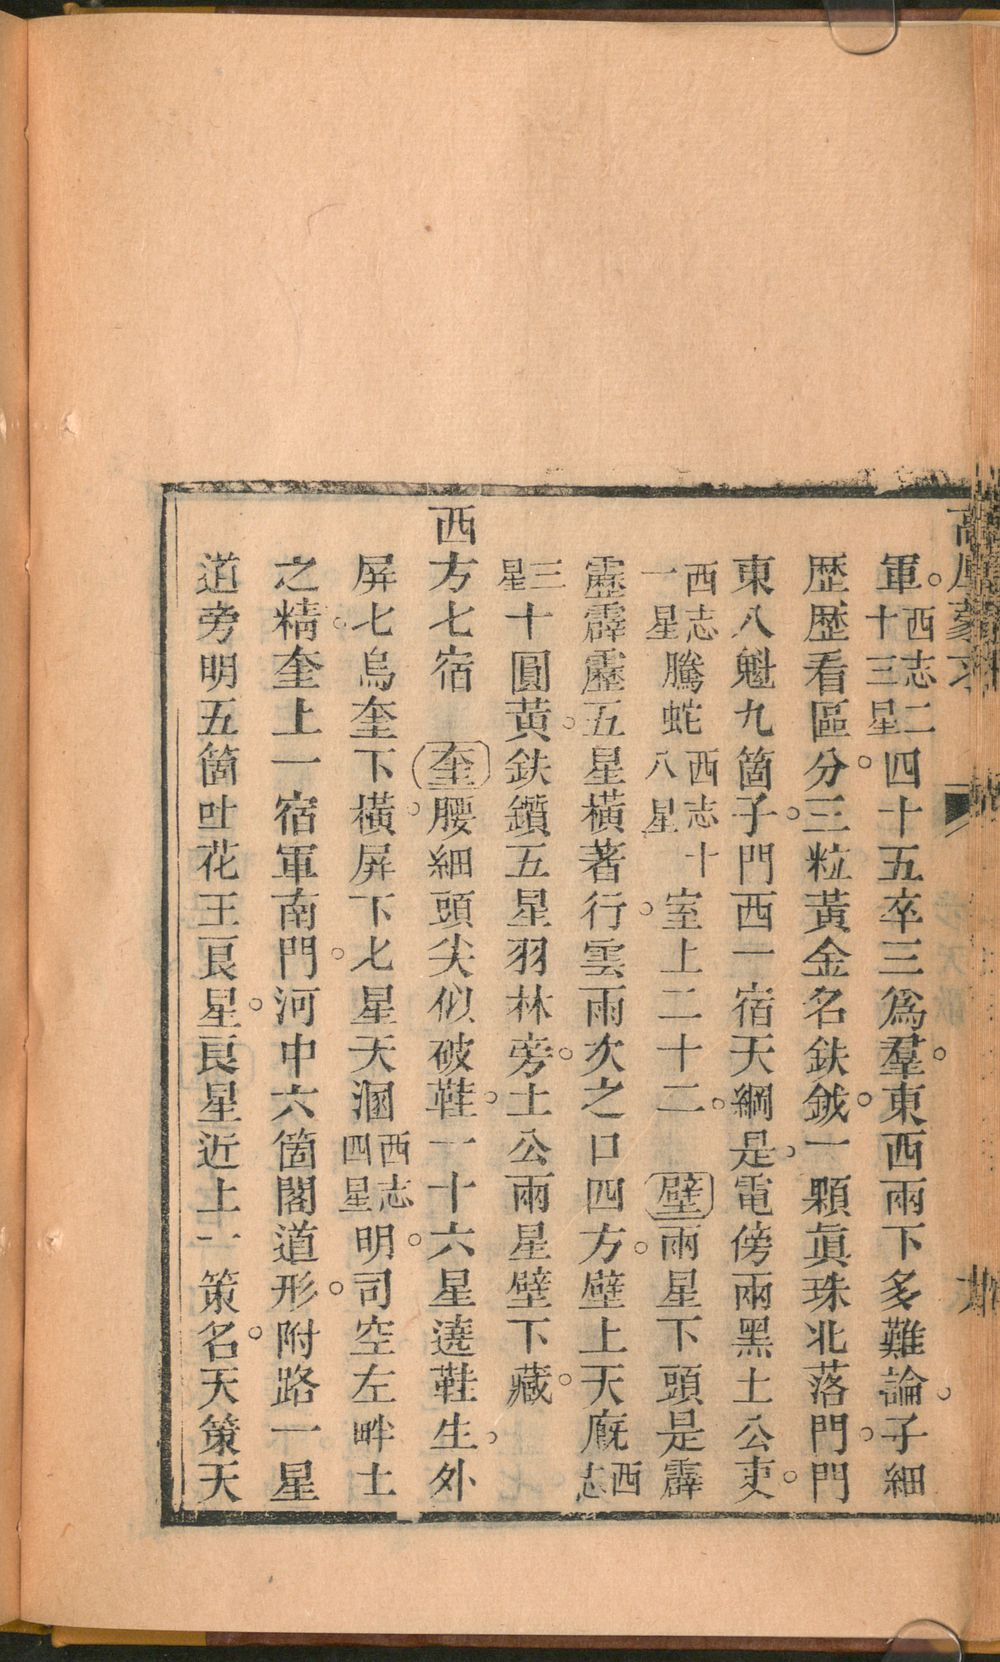 軍。西志二十三星四十五卒三爲羣。東西兩下多難論。子細
歷歷看區分。三粒黃金名鈇鉞。一顆眞珠北落門。門
東八魁九箇子。門西一宿天綱是。電傍兩黑土公吏。
西志一星騰蛇西志十八星室上二十二。壁兩星下頭是霹
靂霹靂五星橫著行。雲雨次之口四方。壁上天廄西志
三星十圓黃。鈇鑕五星羽林旁。土公兩星壁下藏。
西方七宿　奎腰細頭尖似破鞋。一十六星遶鞋生。外
屏七烏奎下橫。屏下七星天溷西志四星明。司空左畔土
之精。奎上一宿軍南門。河中六箇閣道形。附路一星
道旁明五箇吐花王良星。良星近上一策名。天策天